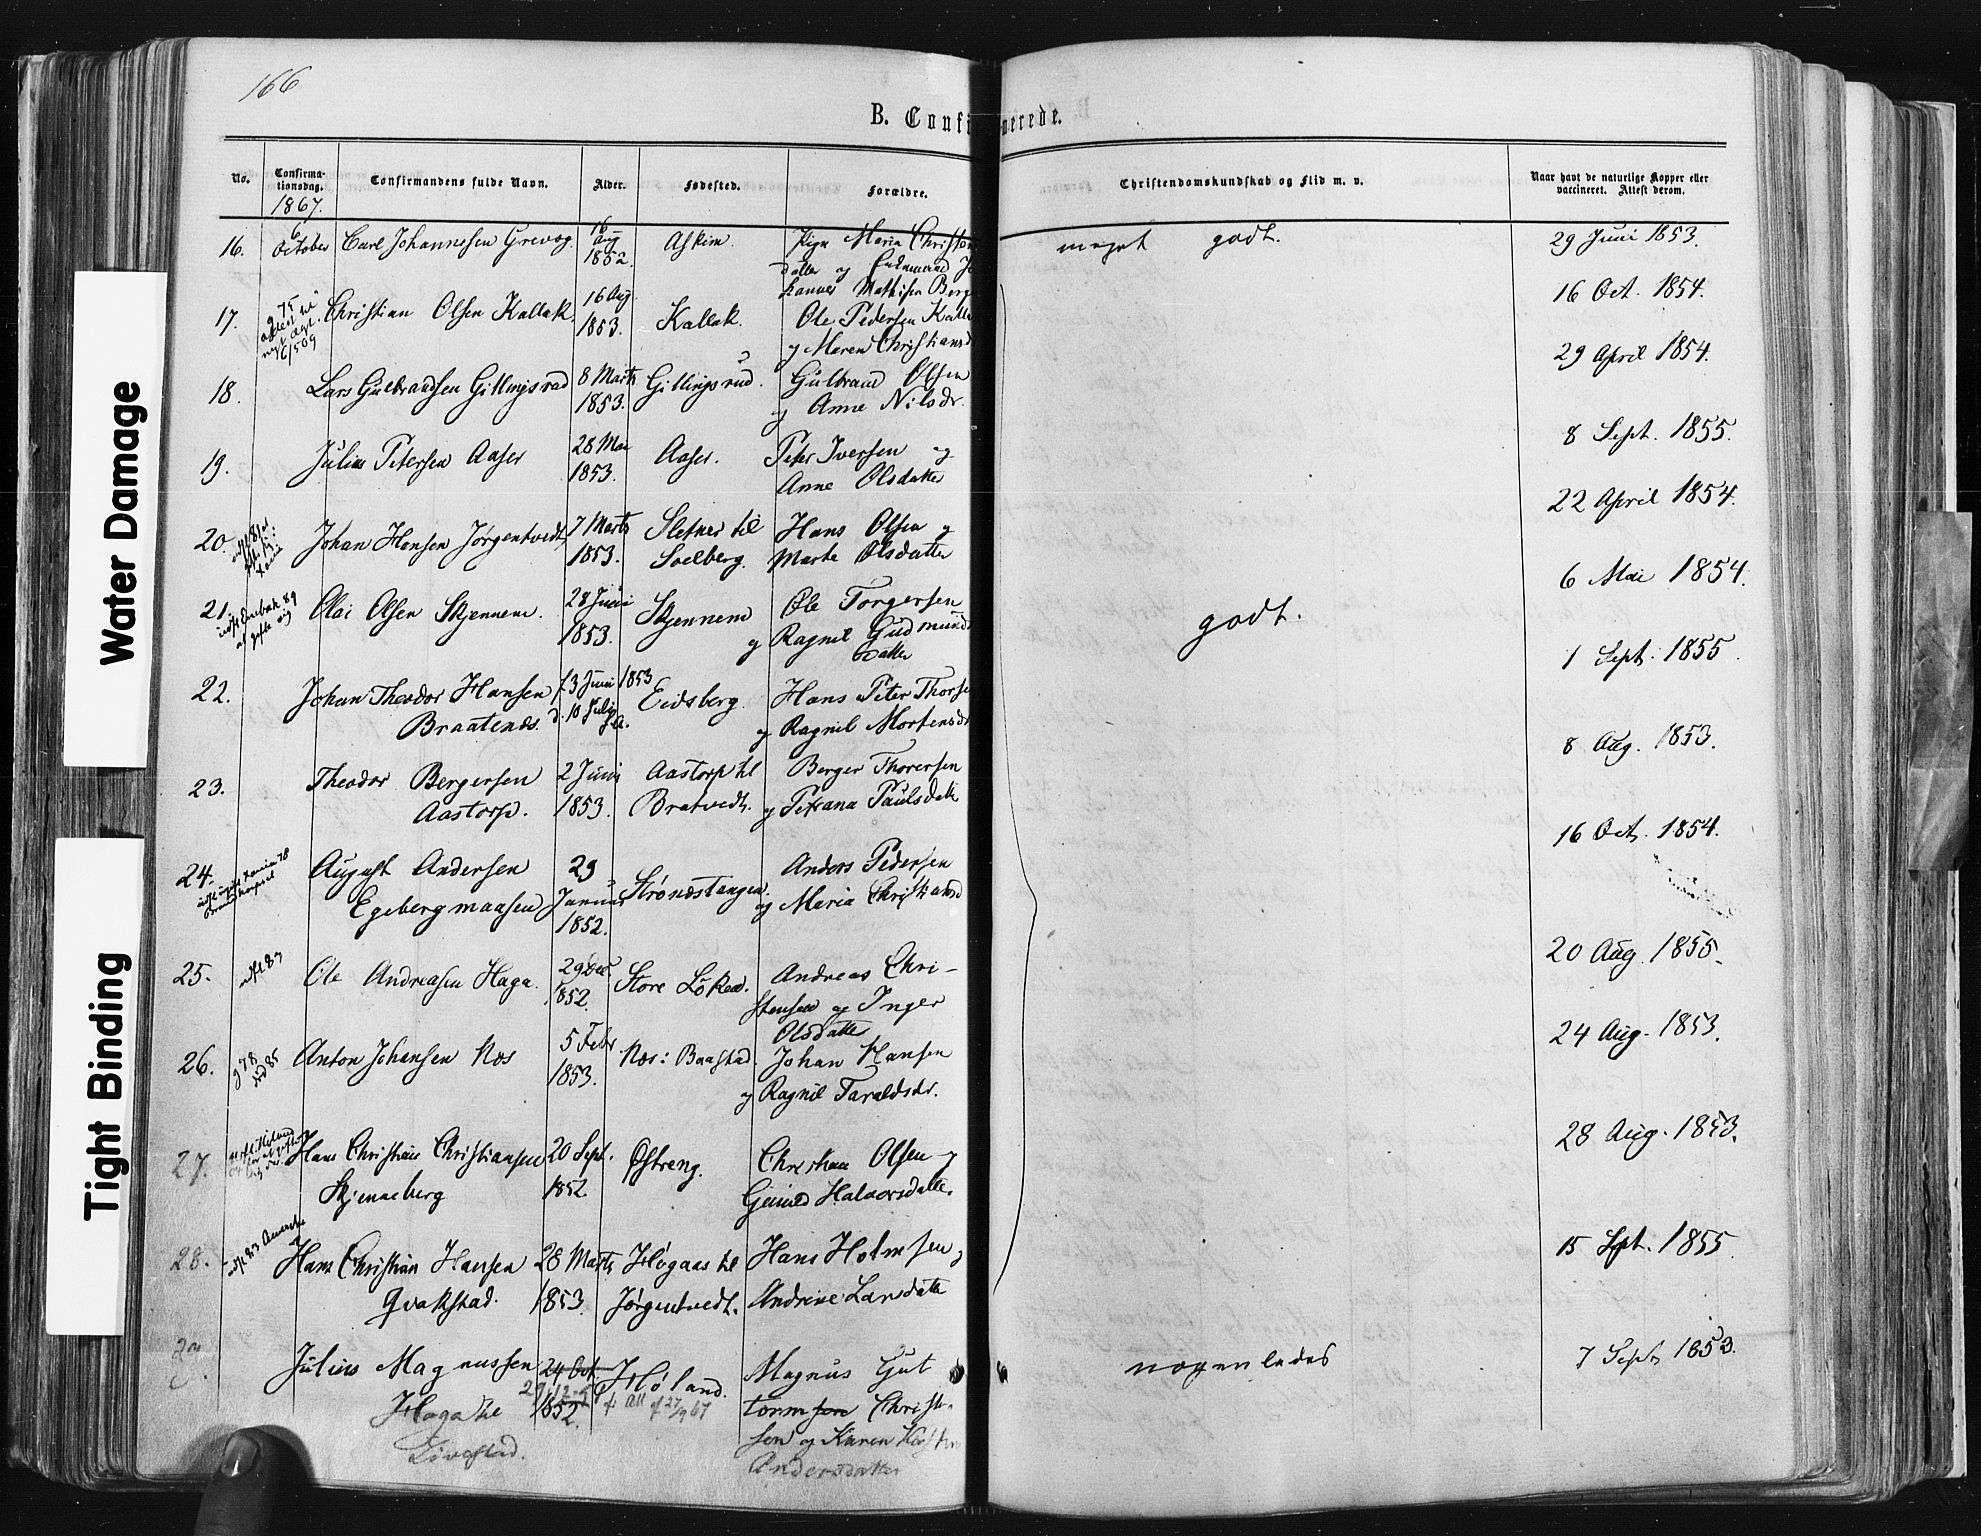 166
B. Confirmerede.
No.
Confirma-
tionsdag.
1867.
Confirmandens fulde Navn.
Alder.
Fødested.
Forældre.
Christendomskundskab og Flid m. v.
Naar havt de naturlige Kopper eller
vaccineret. Attest derom.
16. 6 October Carl Johannesen Grevog. 16 Aug 1852. Askim. Pige Maria Christen
datter og Jo
hannes Mathisen Berg
meget godt. 29 Juni 1853.
17. g 75 Christian Olsen Kallak. 16 Aug 1853. Kallak. Ole Pedersen Kalla
og Maren Christiansd
16 Oct. 1854.
18. Lars Gulbrandsen Gillingsrud 8 Marts 1853. Gillingsrud. Gulbrand Olsen
og Anne Nilsdr.
29 April 1854.
19. Julius Petersen Aaser 28 Mai 1853. Aaser. Peter Iversen og
Anne Olsdatter
8 Sept. 1855.
20. Johan Hansen Jørgentvedt 7 Marts 1853. Sletner til
Solberg. Hans Olsen og
Marte Olsdatter
22 April 1854.
21. Olai Olsen Skjennem. 28 Juni 1853. Skjennem Ole Torgersen
og Ragnil Gudmunds
datter
godt. 6 Mai 1854.
22. Johan Theodor Hansen
Braatenæs. f. 3 Juni 1853
d. 10 Juli Eidsberg. Hans Peter Thors
og Ragnil Mortensdr
1 Sept. 1855.
23. Theodor Bergersen
Aastorp. 2 Juni 1853. Aastorp til
Bratvedt. Berger Thoresen
og Petrana Paulsdatter
8 Aug. 1853.
24. August Andersen
Egebergmaasen 29 Januar 1852. Strøndstangen. Anders Pedersen
og Maria Christiansd
16 Oct. 1854.
25. udfl 83 Ole Andreasen Haga. 29 Dec 1852. Store Løken. Andreas Chri-
stensen og Inger
Olsdatter
20 Aug. 1855.
26. g 78 Anton Johansen Næs 5 Febr 1853. Næs: Baastad. Johan Hansen
og Ragnil Taraldsdr.
24 Aug. 1853.
27. Hans Christian Christiansen
Skjenneberg 20 Sept. 1852. Østreng. Christian Olsen og
Halvorsdatter.
28 Aug. 1853.
28. udfl 83 Hans Christian Hansen
Qvakstad. 28 Marts 1853. Høgaas til
Jørgentvedt. Hans Holmsen og
Andrine Larsdatter
15 Sept. 1855.
29. Julius Magnussen
Haga til
Livestad. 24 Oct. 1852. Høland. Magnus Gut
tormsen Christi-
sen og Karen Kirstine
Andersdatter
nogenledes 7 Sept. 1853.
Water Damage
Tight Binding